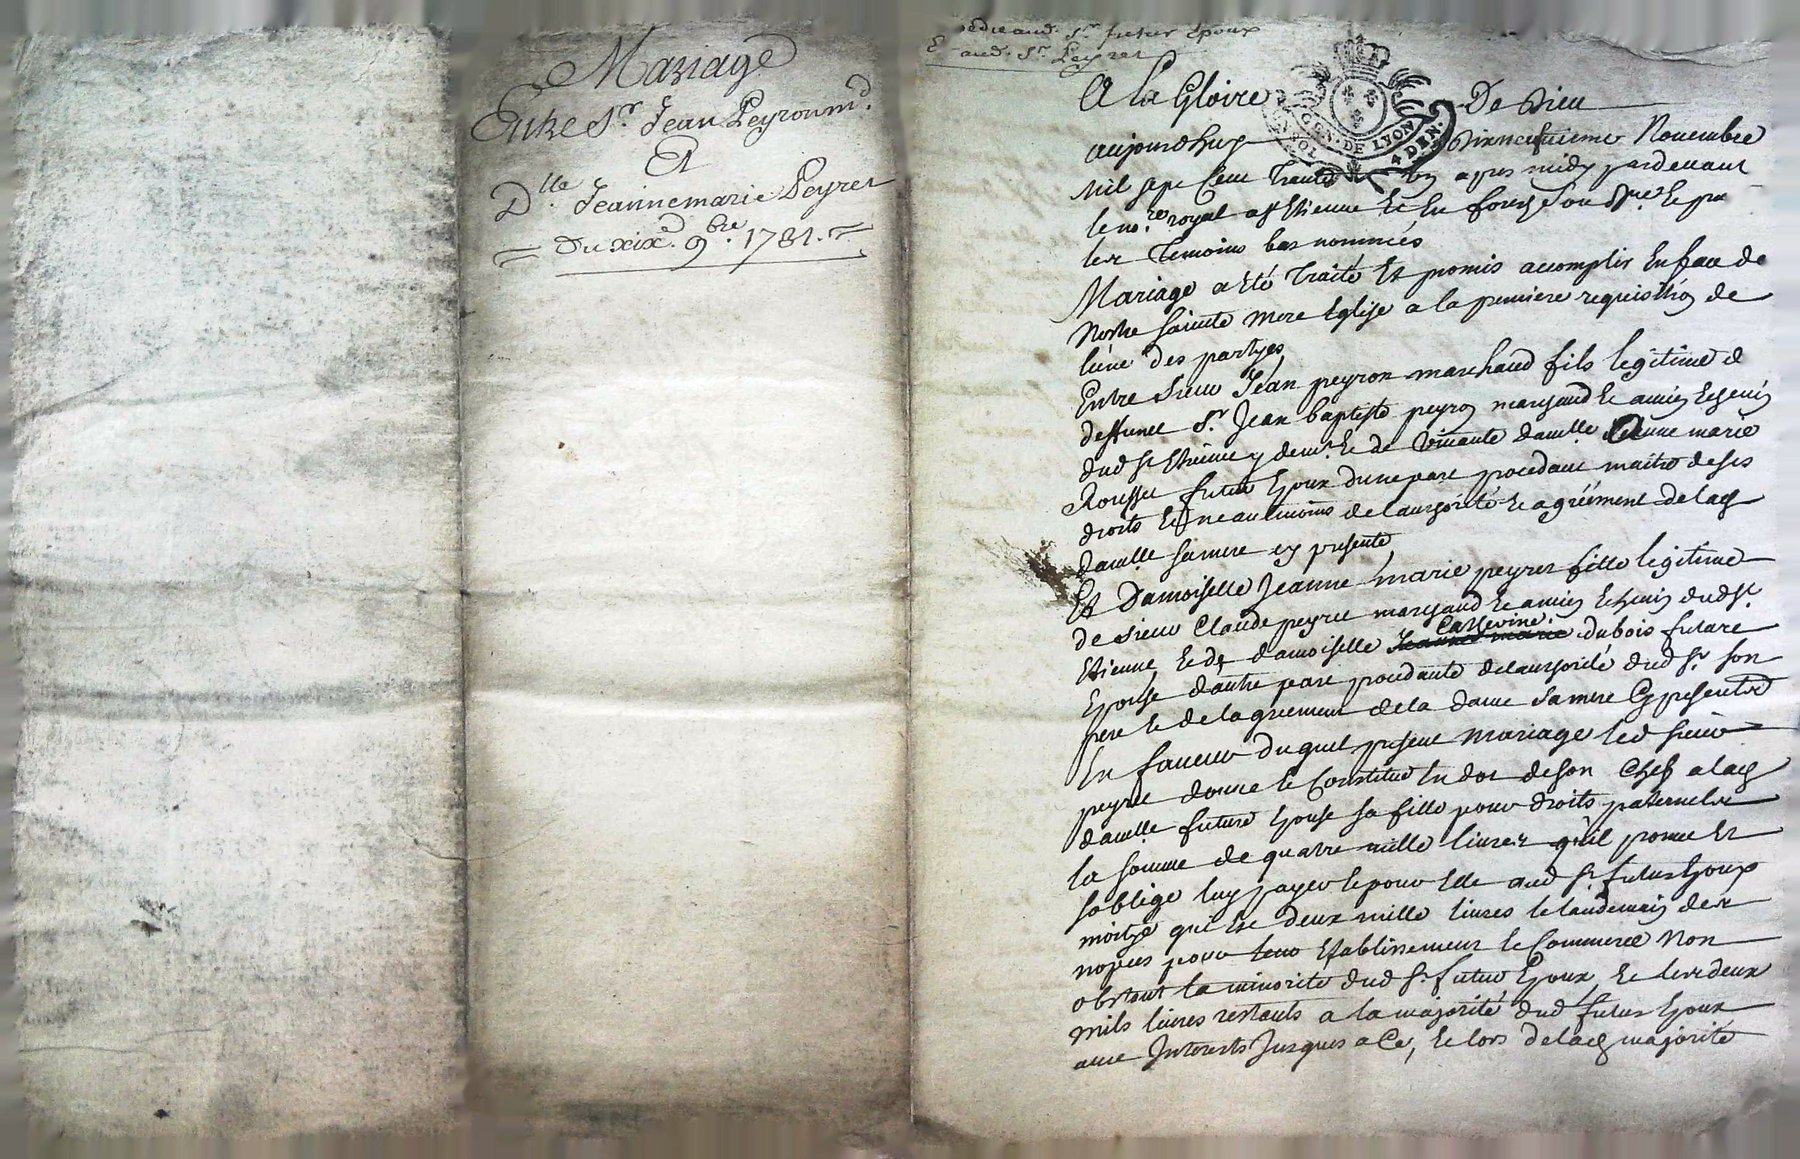 Mariage
Entre Sr. Jean Peyron md.
Et
Dlle. Jeannemarie Peyret
Du xixe. 9bre. 1731.
aud. Sr. futur Epoux
E aud. Sr. Peyret
A la Gloire De Dieu
GEN. DE LYON
4 DEN.
aujourdhuy Dixneufvieme Novembre
Mil sept Cent Trente Un apres midy pardevant
le no.re royal a St Etienne et en forest Soussigné et pnt
les Temoins bas nommés
Mariage a Eté Traité Et promis accomplir En face de
Nostre Sainte Mere Eglise a la premiere requisition de
lune des partyes
Entre Sieur Jean peyron marchand fils legitime de
deffunct Sr. Jean baptiste peyron marchand et ancien Echevin
dud St Etienne y demt. Et de vivante damlle Jeanne marie
Rousset futur Epoux dune part procedant maitre de ses
droits Et neantmoins de lauthorité et agréément de lad
damlle sa mere icy presente
Et Damoiselle Jeanne marie peyret fille legitime
de Sieur Claude peyret marchand et ancien Echevin dud St.
Etienne et de damoiselle Jeanne marie Catherine dubois future
Epouse dautre part procedante de lauthorité dud Sr. son
pere et de lagreement de la dame sa mere Cy presents
En faveur duquel present mariage led Sieur
peyret donne et Constitue En dot de son Chef a lad
damlle future Epouse sa fille pour droits paternels
la somme de quatre mille livres qu'il promet Et
soblige luy payer et pour Elle aud Sr. futur Epoux
moitye qui est deux mille livres le landemain des
nopces pour leur Etablissement et Commerce Non
obstant la minorité dud Sr. futur Epoux, Et les deux
mils livres restants a la majorité dud futur Epoux
avec Interests Jusques a Ce, Et lors de lad majorité